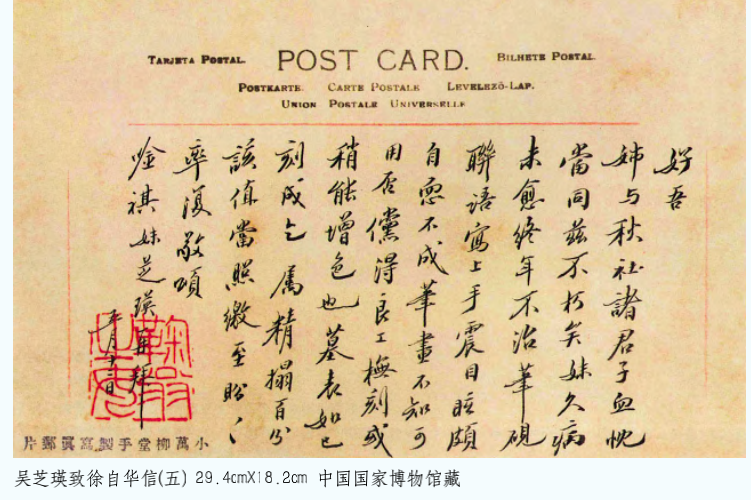 TARJETA POSTAL.
POST CARD.
BILHETE POSTAL.
POSTKARTE. CARTE POSTALE LEVELEZŐ-LAP.
UNION POSTALE UNIVERSELLE
好吾
姊与秋社諸君子血忱
當同茲不朽矣妹久病
未愈終年不治筆硯
聯語寫上手震目眩頗
自恧不成筆畫不知可
用否儻得良工橅刻或
稍能增色也墓表如已
刻成乞 属精搨百分
該值當照繳至盼〻
率復敬頌
唫祺妹芝瑛再拜
小萬柳堂手製寫眞郵片
吴芝瑛致徐自华信(五) 29.4cmX18.2cm 中国国家博物馆藏